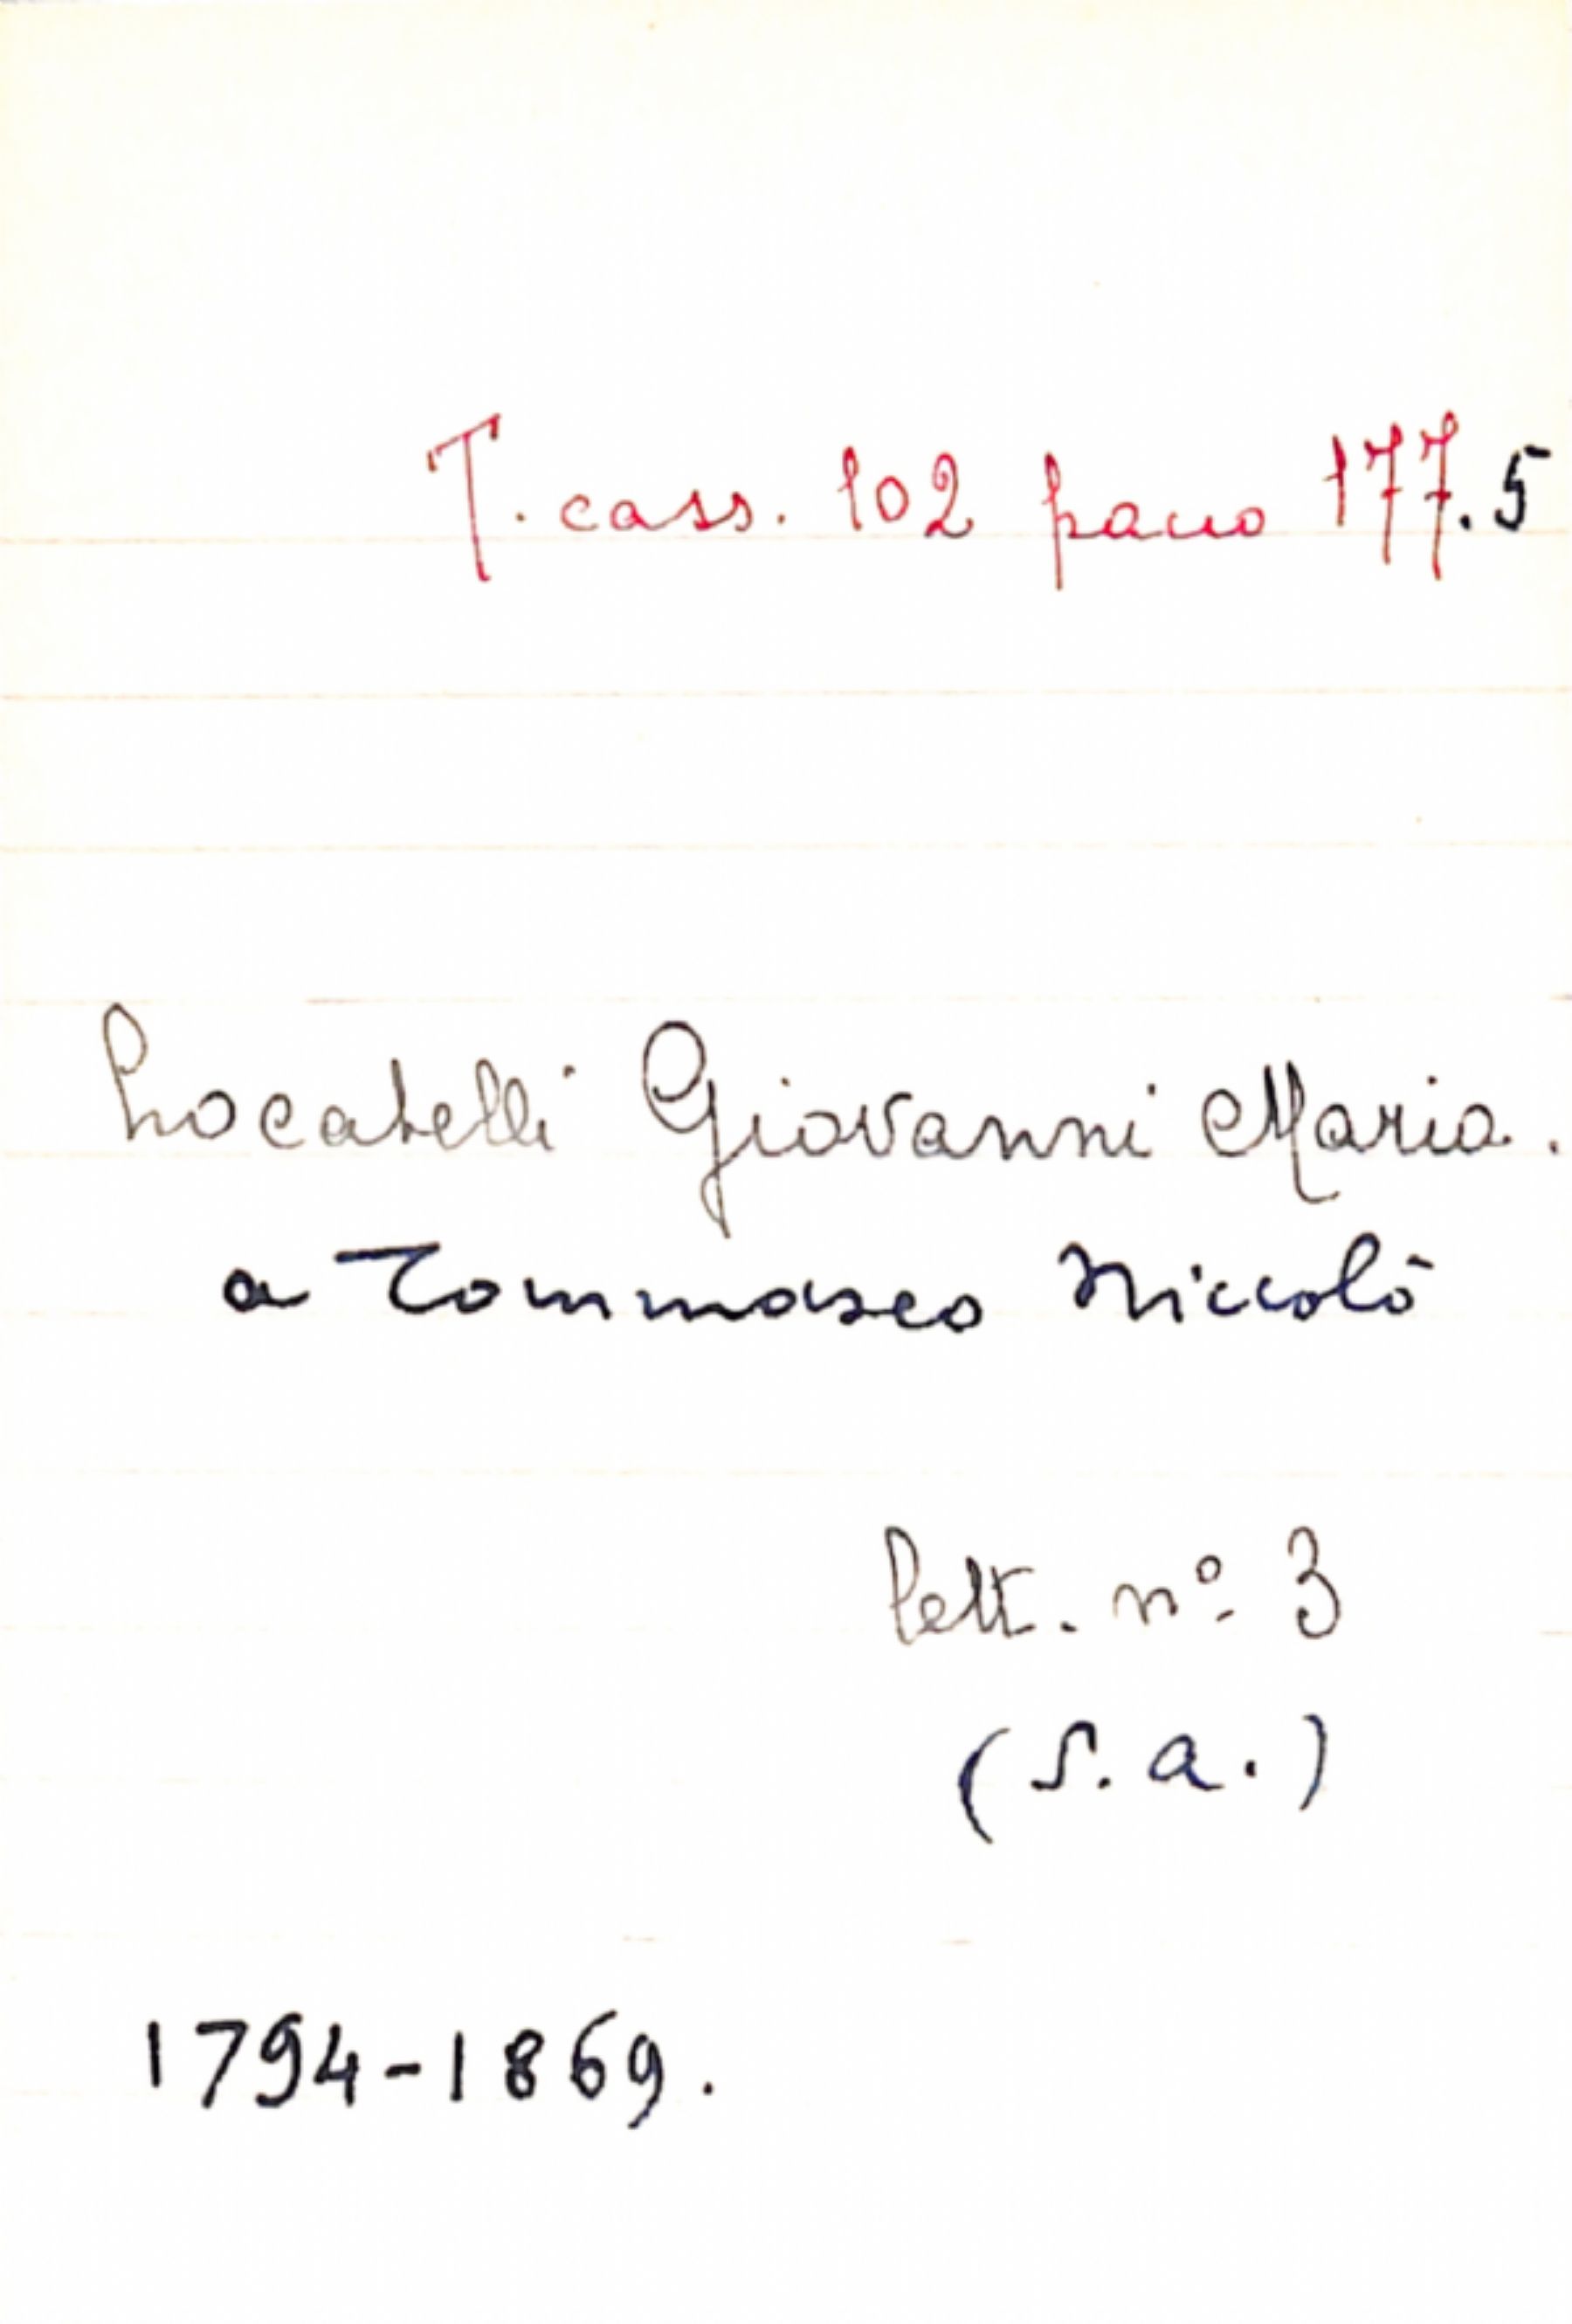 T. cass. 102 pacco 177.5
Locatelli Giovanni Maria.
a Tommaseo Niccolò
lett. nº 3
(S. a.)
1794-1869.